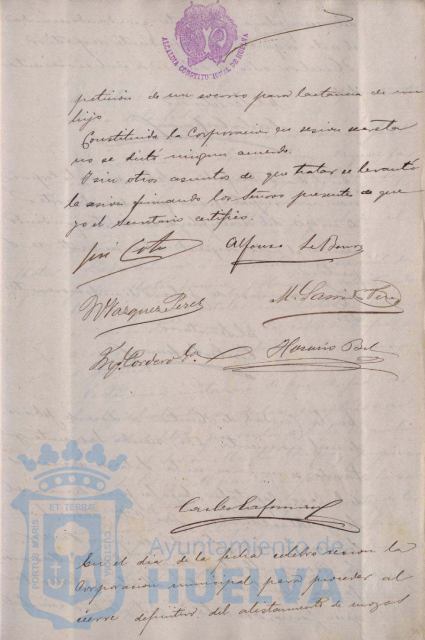 ALCALDIA CONSTITUCIONAL DE HUELVA
peticion de un socorro para lactancia de un
hijo
Constituida la Corporacion en sesion secreta
no se dictó ningun acuerdo.
Y sin otros asuntos de que tratar se levantó
la sesion firmando los Señores presentes de que
yo el Secretario certifico.
José Coto
Alfonso Le Bourg
Vazquez Perez
M. Garrido Perez
Cordero
Horacio Bel
PORTUS MARIS ET TERRAE CUSTODIA
Ayuntamiento de
HUELVA
En el dia de la fecha celebró sesion la
Corporacion municipal para proceder al
cierre definitivo del alistamiento de mozos